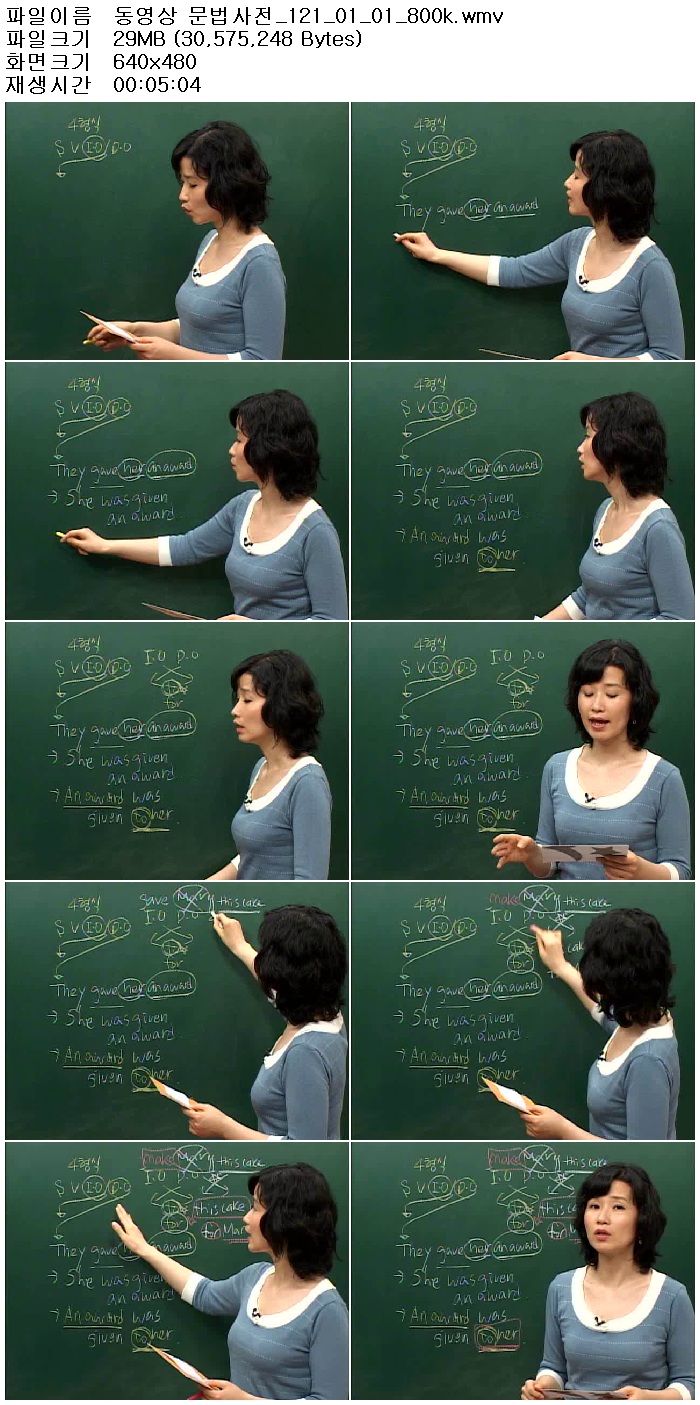 파일이름 동영상 문법사전_121_01_01_800k.wmv
파일크기 29MB (30,575,248 Bytes)
화면크기 640x480
재생시간 00:05:04
4형식
S V I.O / D.O
4형식
S V I.O / D.O
They gave her an award
4형식
S V I.O / D.O
They gave her an award
→ She was given
an award
4형식
S V I.O / D.O
They gave her an award
→ She was given
an award
→ An award was
given to her.
4형식
S V I.O / D.O
I.O D.O
to
for
They gave her an award
→ She was given
an award
→ An award was
given to her.
4형식
S V I.O / D.O
I.O D.O
to
for
They gave her an award
→ She was given
an award
→ An award was
given to her.
4형식
S V I.O / D.O
gave Mary this cake
I.O D.O
to
for
They gave her an award
→ She was given
an award
→ An award was
given to her.
4형식
S V I.O / D.O
make Mary this cake
I.O D.O
to
for
They gave her an award
→ She was given
an award
→ An award was
given to her.
4형식
S V I.O / D.O
make Mary this cake
I.O D.O
to
for
this cake
They gave her an award
→ She was given
an award
→ An award was
given to her.
4형식
S V I.O / D.O
make Mary this cake
I.O D.O
to
for
They gave her an award
→ She was given
an award
→ An award was
given to her.